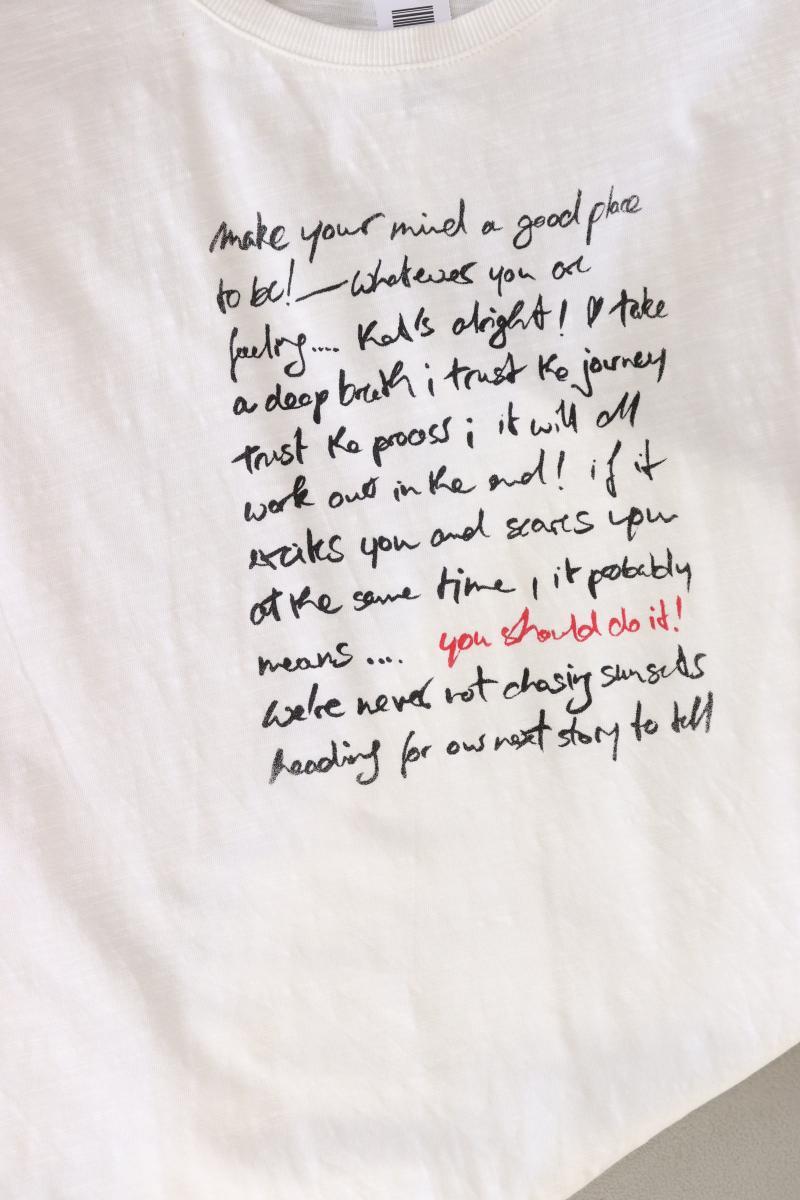 make your mind a good place
to be! — whatever you are
feeling.... that's alright! ♡ take
a deep breath ; trust the journey
trust the process ; it will all
work out in the end! if it
excites you and scares you
at the same time , it probably
means ... you should do it!
we're never not chasing sunsets
heading for our next story to tell